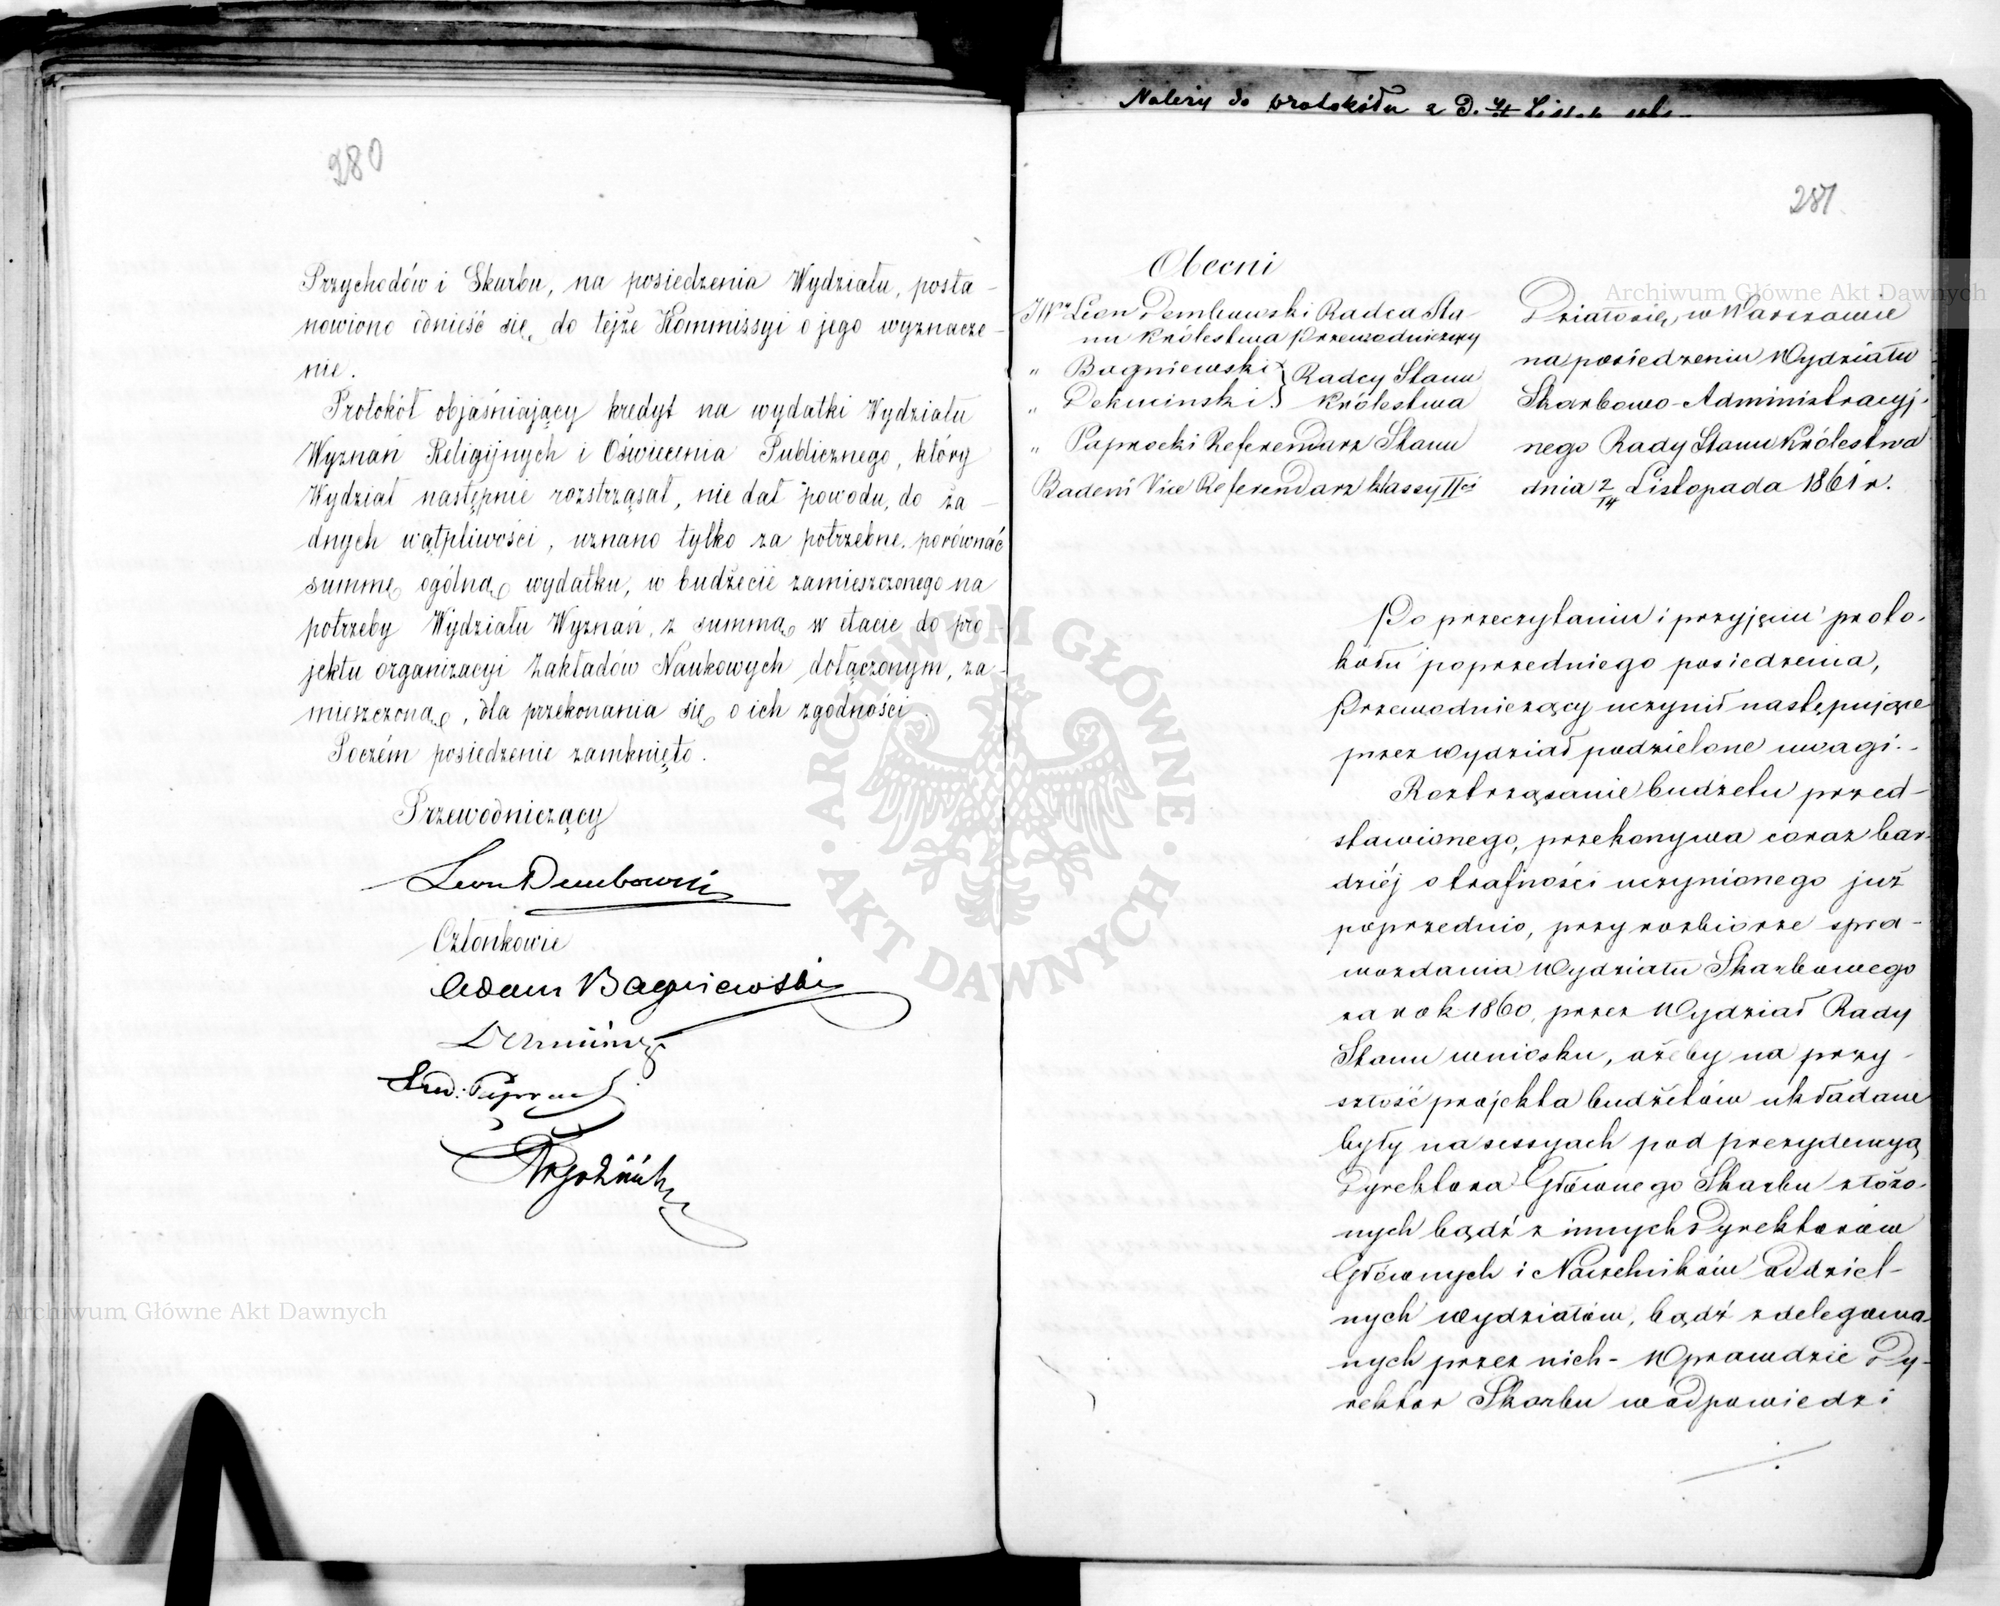 280
Przychodów i Skarbu, na posiedzenia Wydziału, posta-
nowiono odnieść się, do tejże Kommissyi o jego wyznacze-
nie.
Protokół objaśniający kredyt na wydatki Wydziału
Wyznań Religijnych i Oświecenia Publicznego, który
Wydział następnie rozstrząsał, nie dał powodu, do ża-
dnych wątpliwości, uznano tylko za potrzebne, porównać
summę ogólną wydatku, w budżecie zamieszczonego na
potrzeby Wydziału Wyznań, z summą w etacie do pro-
jektu organizacyi Zakładów Naukowych dołączonym, za-
mieszczoną, dla przekonania się o ich zgodności.
Poczém posiedzenie zamknięto.
Przewodniczący
Leon Dembowski
Członkowie
Adam Bagniewski
Należy do protokółu z D.
281
Obecni
JWny Leon Dembowski Radca Sta-
nu Królestwa Przewodniczący
" Bagniewski } Radcy Stanu
" Dekuciński } Królestwa
" Paprocki Referendarz Stanu
Badeni Vice Referendarz Klassy IIéj
Działo się, w Warszawie
na posiedzeniu Wydziału
Skarbowo-Administracyj-
nego Rady Stanu Królestwa
dnia 2/14 Listopada 1861 r.
Po przeczytaniu i przyjęciu proto-
kółu poprzedniego posiedzenia,
Przewodniczący uczynił następujące
przez Wydział podzielone uwagi.-
Roztrząsanie budżetu przed-
stawionego, przekonywa coraz bar-
dziéj o trafności uczynionego już
poprzednio, przy rozbiorze spra-
wozdania Wydziału Skarbowego
za rok 1860, przez Wydział Rady
Stanu wniosku, ażeby na przy-
szłość projekta budżetów układane
były na sessyach pod prezydencyą
Dyrektora Głównego Skarbu złożo-
nych bądź z innych Dyrektorów
Głównych i Naczelników oddziel-
nych wydziałów, bądź z delegowa-
nych przez nich- Wprawdzie Dy-
rektor Skarbu w odpowiedzi
Archiwum Główne Akt Dawnych
Archiwum Główne Akt Dawnych
ARCHIWUM GŁÓWNE
AKT DAWNYCH